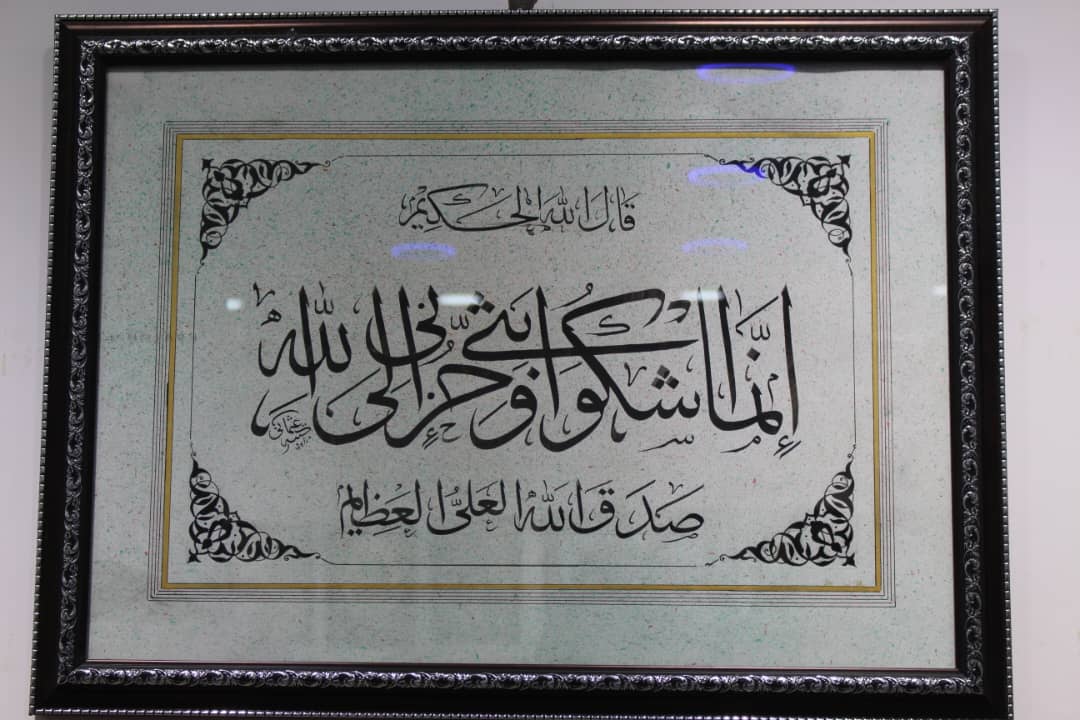 قال الله الحكيم
إنما أشكو بثي وحزني إلى الله
صدق الله العلي العظيم